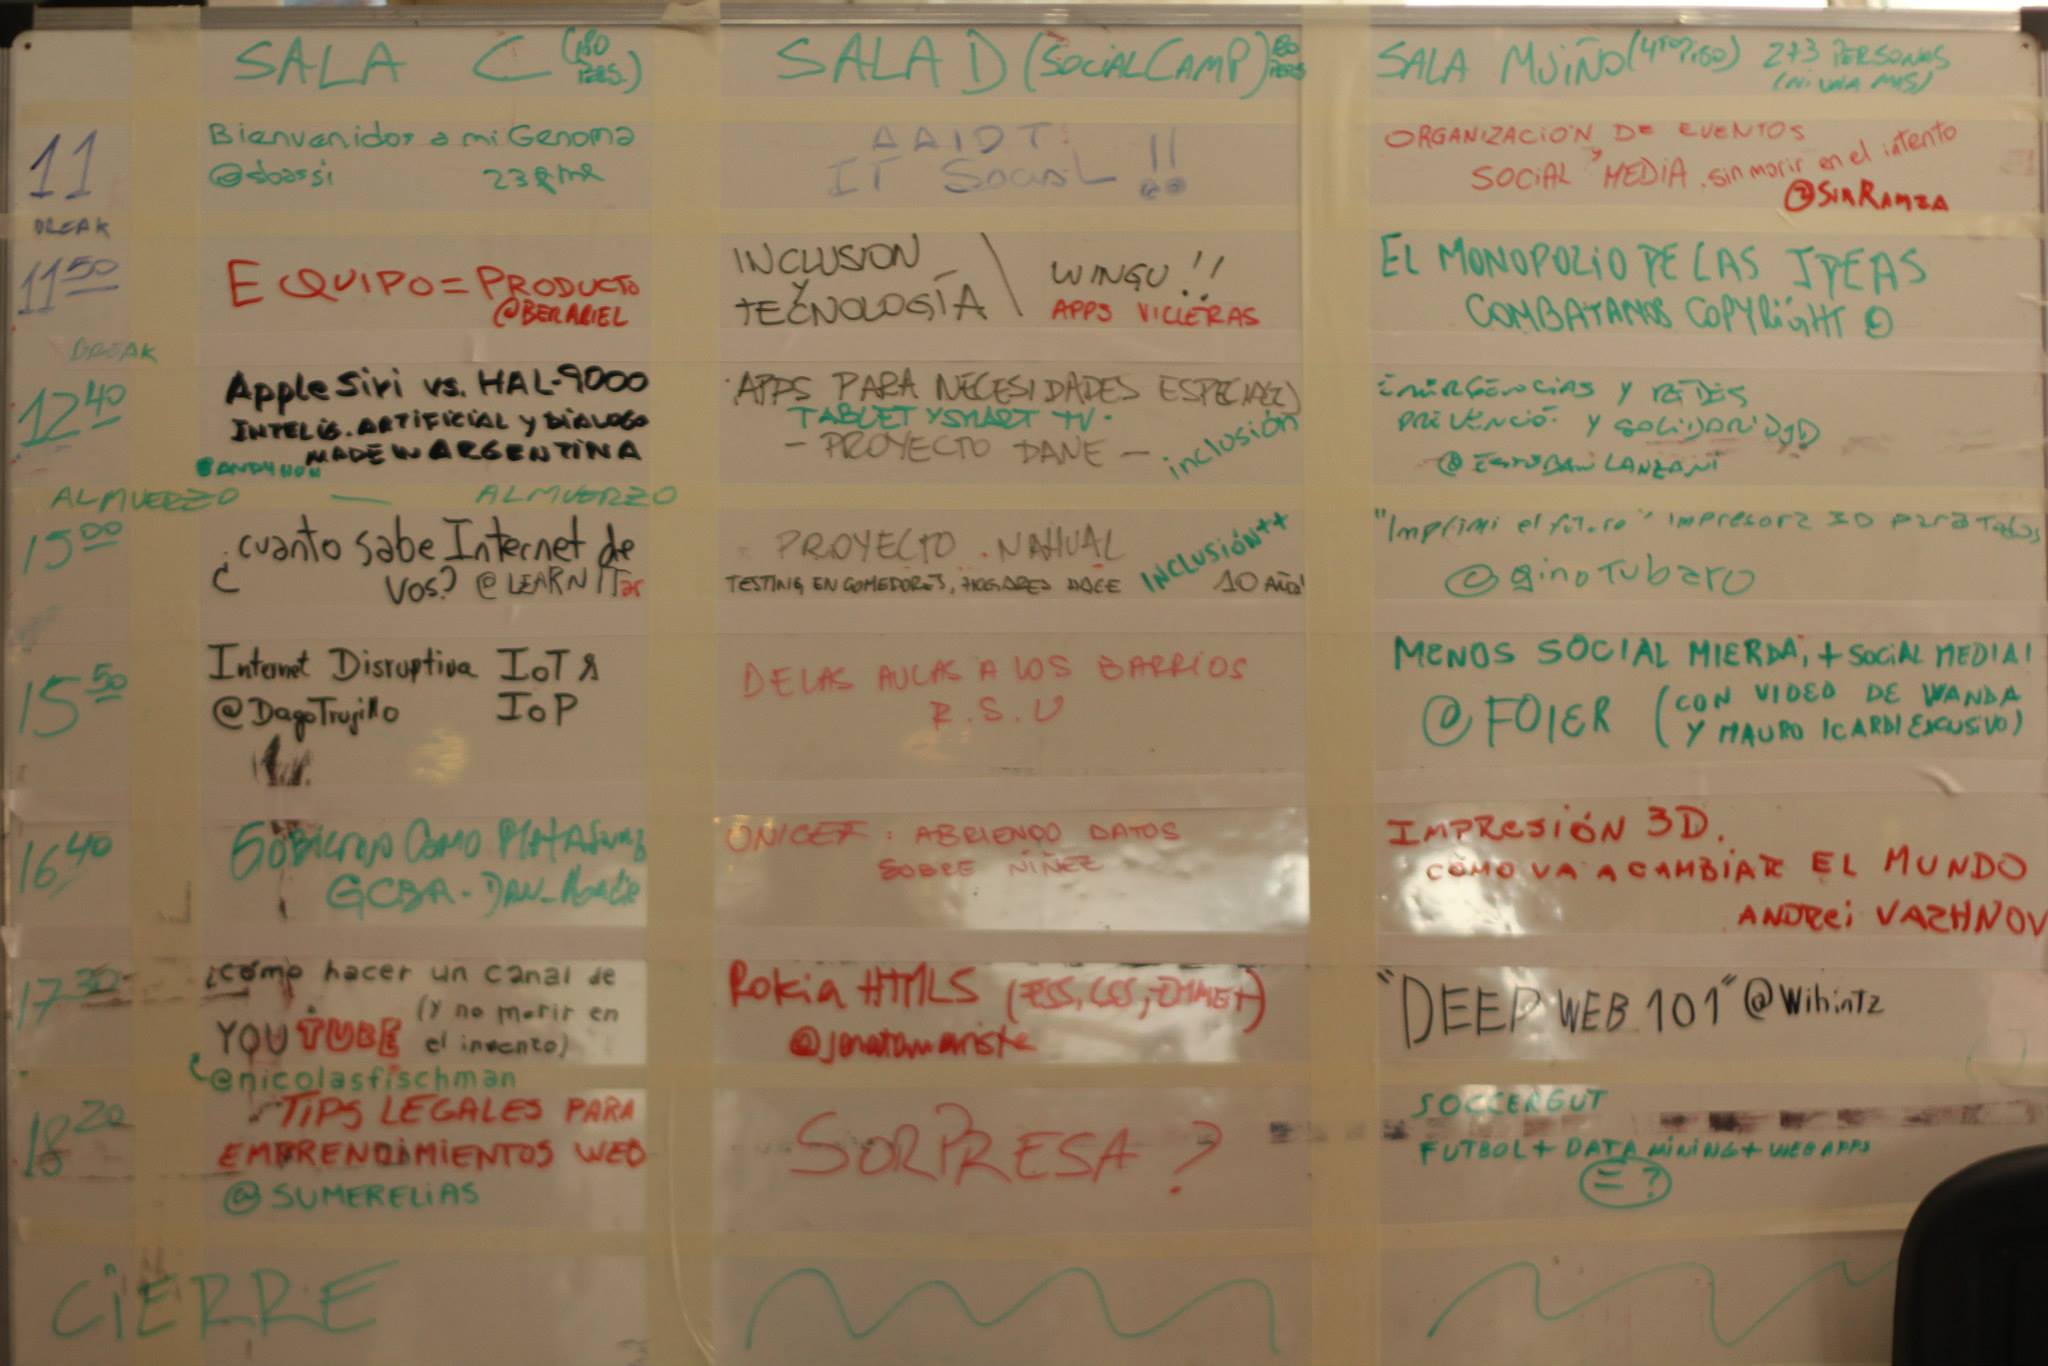 SALA C (180 PERS.)
SALA D (SOCIAL CAMP) 80 PERS
SALA MUIÑO (4TO PISO) 273 PERSONAS
(NI UNA MAS)
11
Bienvenidos a mi Genoma
@sbassi 23&me
AAIDT:
IT Social !!
ORGANIZACION DE EVENTOS
Y
SOCIAL MEDIA. sin morir en el intento
@SirRamza
BREAK
11 50
EQUIPO = PRODUCTO
@BERARIEL
INCLUSION
Y
TECNOLOGÍA
WINGU!!
APPS VILLERAS
EL MONOPOLIO DE LAS IDEAS
COMBATAMOS COPYRIGHT ©
BREAK
12 40
Apple Siri vs. HAL-9000
INTELIG. ARTIFICIAL y DIALOGO
MADE IN ARGENTINA
APPS PARA NECESIDADES
TABLET Y SMART TV.
- PROYECTO DANE - inclusión
EMERGENCIAS Y REDES
PREVENCIÓN Y SOLIDARIDAD
@ESTEBAN LANZANI
ALMUERZO — ALMUERZO
15 00
¿cuanto sabe Internet de
vos? @LEARNITar
PROYECTO NAHUAL
INCLUSIÓN++
TESTING EN COMEDORES, HOGARES HACE 10 AÑOS!
"Imprimi el futuro" Impresora 3D para Todos
@ginoTubaro
15 50
Internet Disruptiva IoT &
@DagoTrujillo IoP
DE LAS AULAS A LOS BARRIOS
R.S.U
MENOS SOCIAL MIERDA, + SOCIAL MEDIA!
@FOIER (CON VIDEO DE WANDA
Y MAURO ICARDI EXCLUSIVO)
16 40
Gobierno como Plataforma
GCBA -
UNICEF: ABRIENDO DATOS
SOBRE NIÑEZ
IMPRESIÓN 3D.
COMO VA A CAMBIAR EL MUNDO
ANDREI VAZHNOV
17 30
¿cómo hacer un canal de
YOUTUBE (y no morir en
el invento)
@nicolasfischman
Rokia HTML5
"DEEP WEB 101" @Wihintz
18 20
TIPS LEGALES PARA
EMPRENDIMIENTOS WEB
@SUMERELIAS
SORPRESA?
SOCCERGUT
FUTBOL + DATA MINING + WEB APPS
= ?
CIERRE